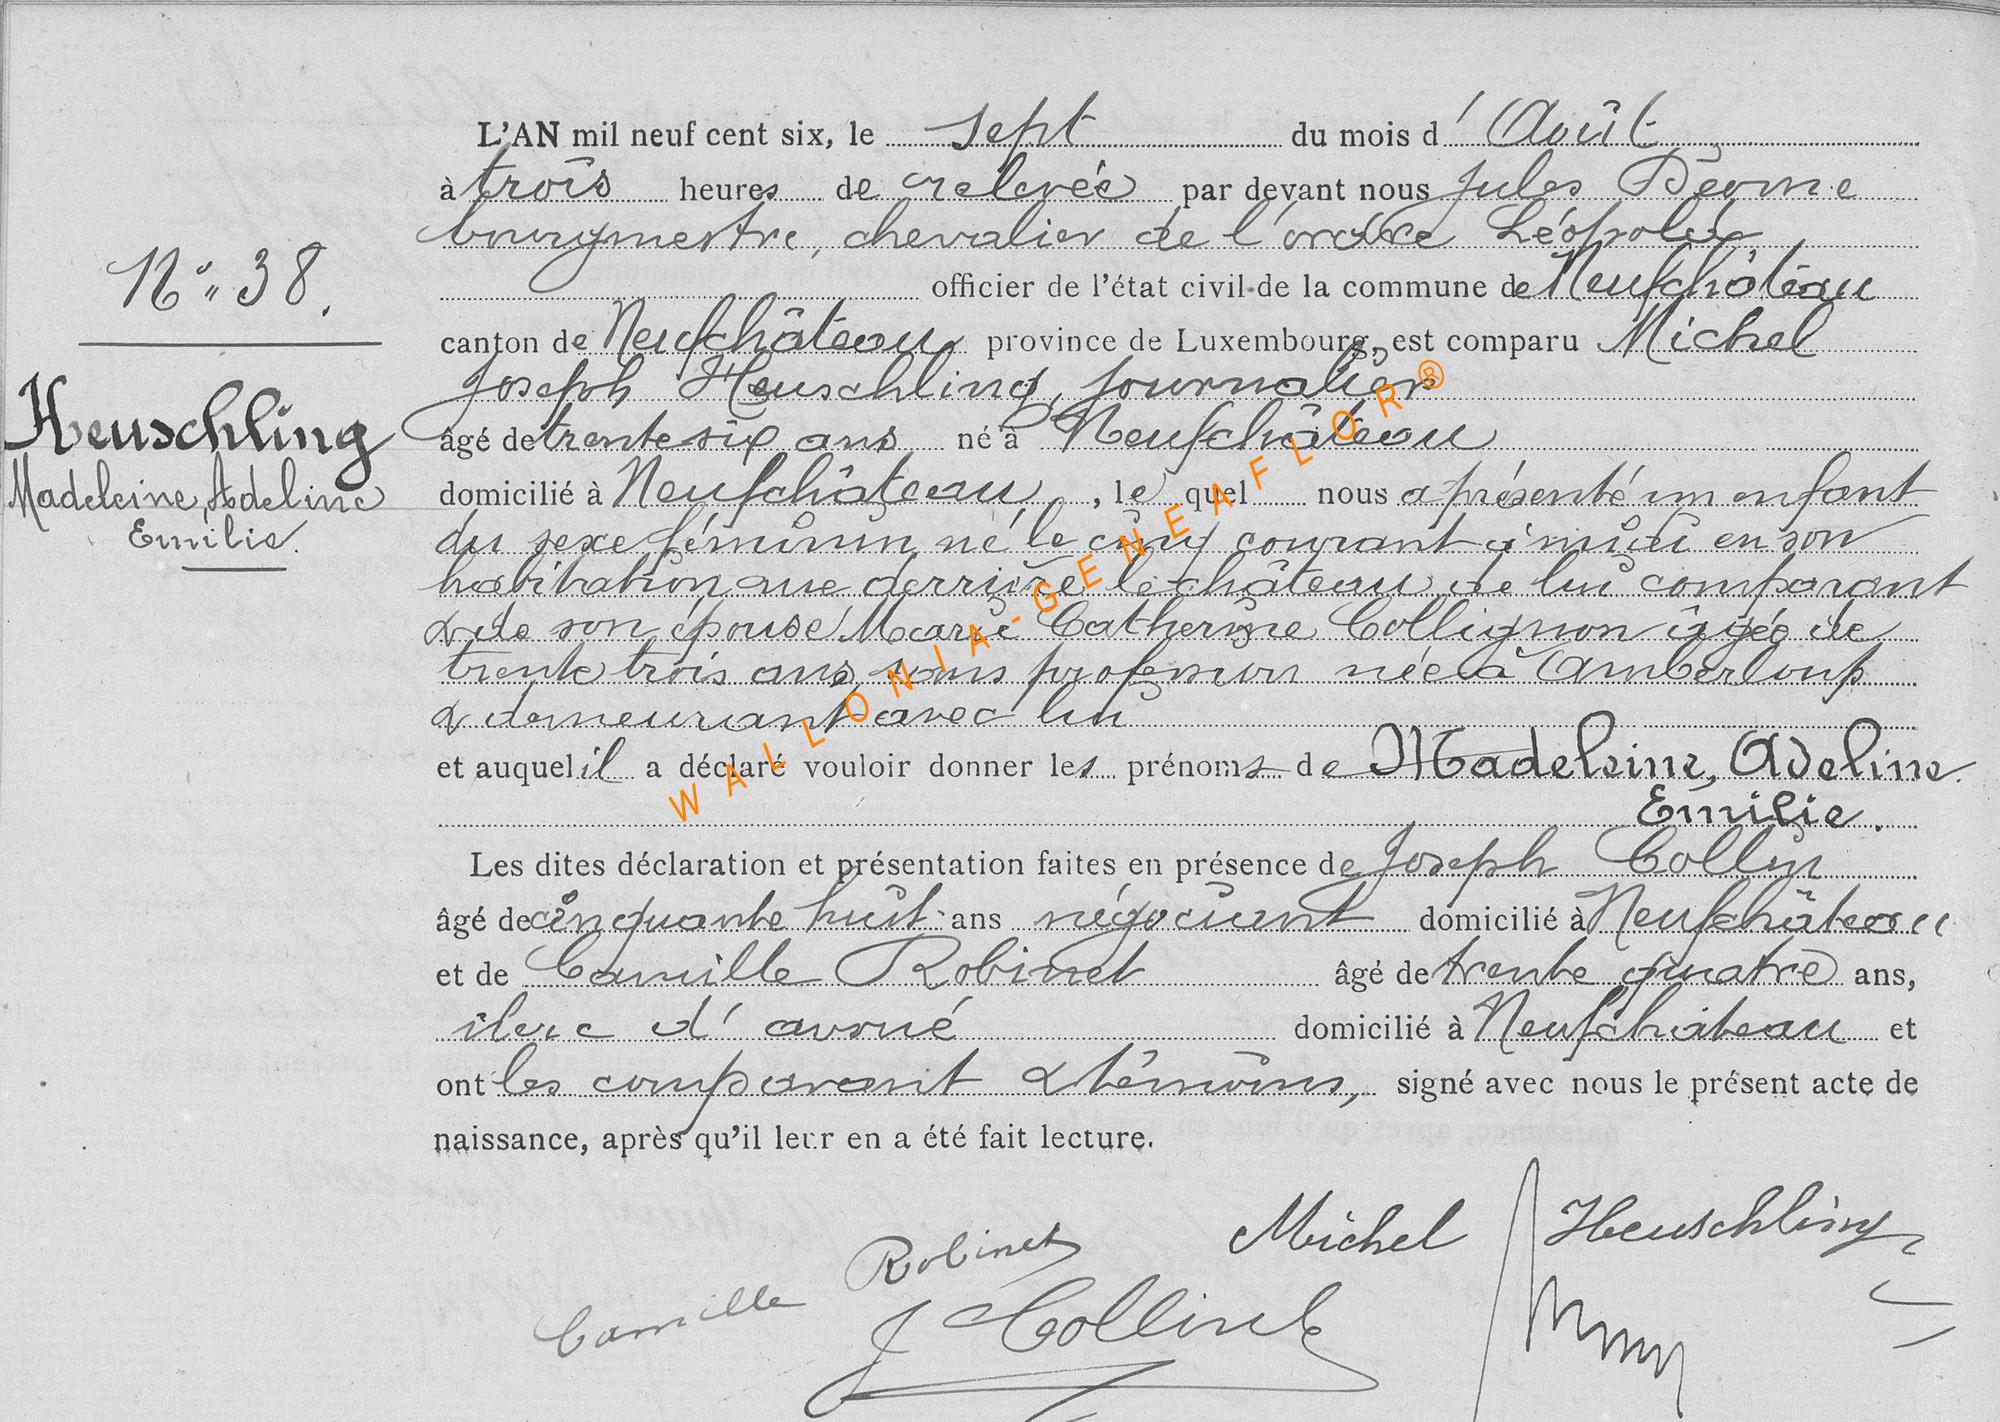 L'AN mil neuf cent six, le sept du mois d' Août
à trois heures de relevée par devant nous Jules
bourgmestre, chevalier de l'ordre Léopold
officier de l'état civil de la commune de Neufchâteau
canton de Neufchâteau province de Luxembourg, est comparu Michel
Joseph Heuschling, journalier
âgé de trente six ans né à Neufchâteau
domicilié à Neufchâteau, le quel nous a présenté un enfant
du sexe féminin né le cinq courant à midi en son
habitation rue derrière le château, de lui comparant
& de son épouse Marie Catherine Collignon âgée de
trente trois ans, sans profession née à Amberloup
& demeurant avec lui
et auquel il a déclaré vouloir donner les prénoms de Madeleine, Adeline
Emilie.
Les dites déclaration et présentation faites en présence de Joseph Collin
âgé de cinquante huit ans négociant domicilié à Neufchâteau
et de Camille Robinet âgé de trente quatre ans,
clerc d' avoué domicilié à Neufchâteau et
ont les comparant & témoins, signé avec nous le présent acte de
naissance, après qu'il leur en a été fait lecture.
N° 38.
Heuschling
Madeleine, Adeline
Emilie.
Michel Heuschling
Camille Robinet
J Collin
WALLONIA-GENEAFLOR®